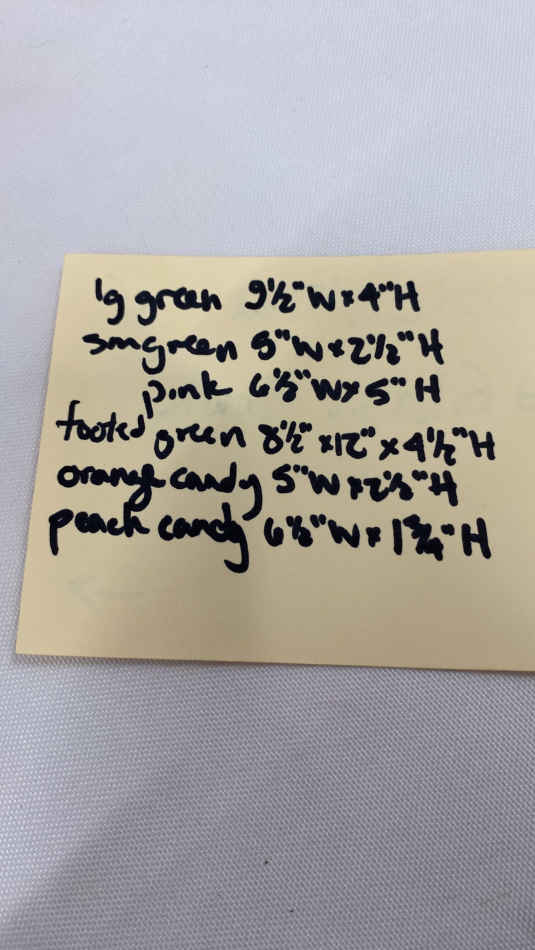 lg green 9½" W x 4" H
sm green 5" W x 2½" H
pink 6½" W x 5" H
footed green 8½" x 12" x 4½" H
orange candy 5" W x 2½" H
peach candy 6½" W x 1¾" H